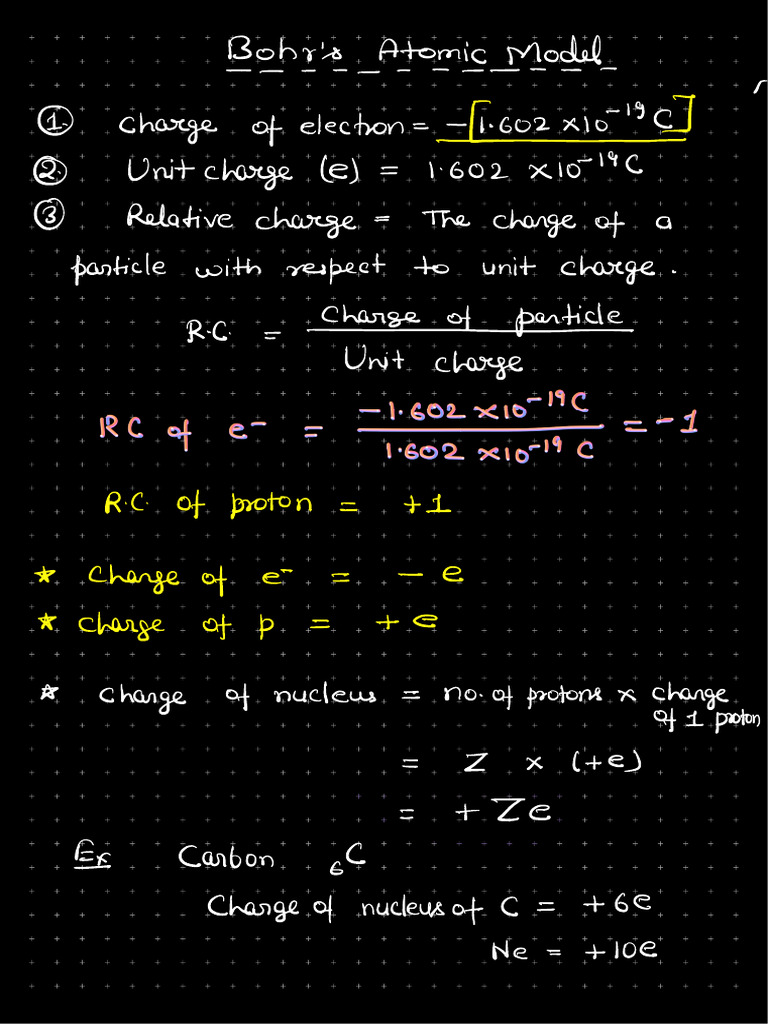 Bohr's Atomic Model
① Charge of electron = -[1.602 × 10⁻¹⁹ C]
② Unit charge (e) = 1.602 × 10⁻¹⁹ C
③ Relative charge = The charge of a
particle with respect to unit charge.
R.C. = Charge of particle
Unit charge
RC of e⁻ = -1.602 × 10⁻¹⁹ C / 1.602 × 10⁻¹⁹ C = -1
R.C. of proton = +1
* Charge of e⁻ = - e
* Charge of p = + e
* Charge of nucleus = no. of protons × charge
of 1 proton
= Z × (+e)
= + Ze
Ex Carbon ₆C
Charge of nucleus of C = + 6e
Ne = + 10e